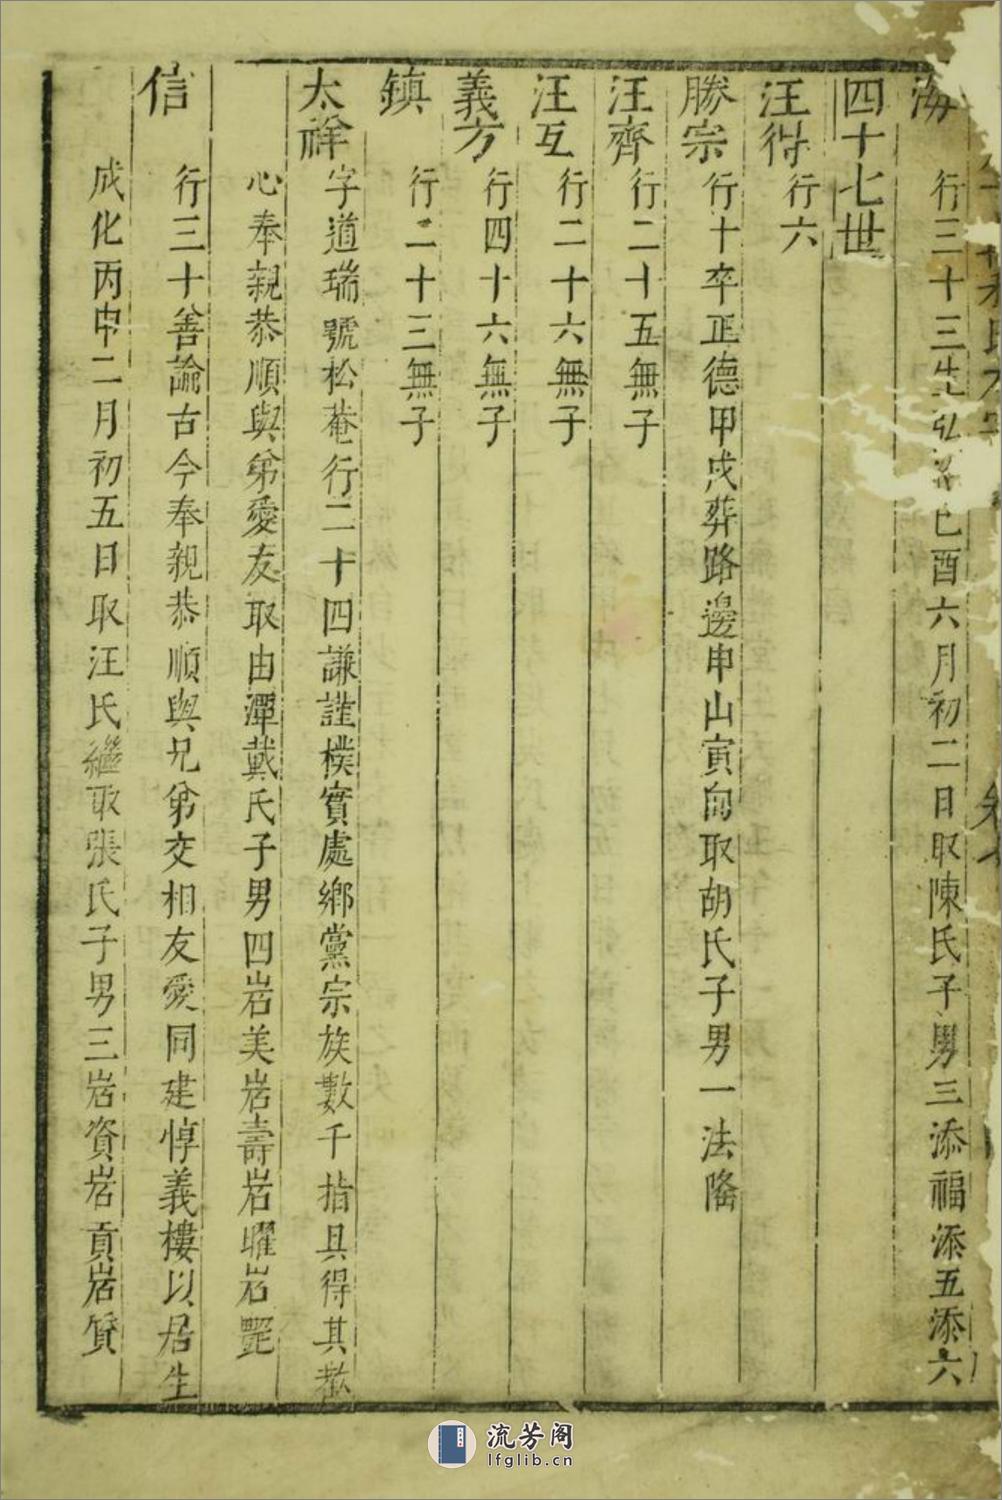 海 行三十三生弘治己酉六月初二日取陳氏子男三添福添五添六
四十七世
汪得 行六
勝宗 行十卒正德甲戌葬路邊申山寅向取胡氏子男一法隆
汪齊 行二十五無子
汪互 行二十六無子
義方 行四十六無子
鎮 行二十三無子
太祥 字道瑞號松菴行二十四謙謹樸實處鄉黨宗族數千指具得其歡
心奉親恭順與弟愛友取由潭戴氏子男四岩美岩壽岩曜岩罷
信 行三十善論古今奉親恭順與兄弟交相友愛同建惇義樓以居生
成化丙申二月初五日取汪氏繼取張氏子男三岩資岩貢岩質
流芳阁
lfglib.cn